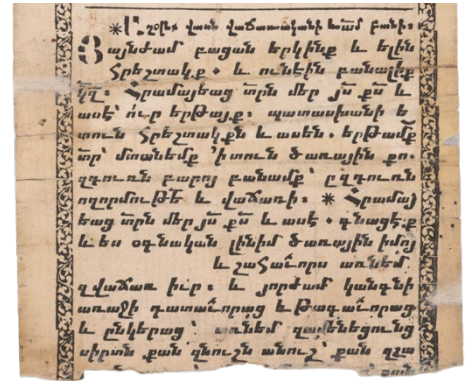 Աղօթք վասն վաճառականի եւ ամ բանի։
Յայնժամ բացան երկինք և ելին
Հրեշտակք. և ունէին բանալիք
Հրամայեաց տրն մեր յս քս և
ասէ՝ ուր երթայք. պատասխանի ե
տուն Հրեշտակքն և ասեն. երթամք
տր՝ մտանեմք ՚ի տուն ծառային քո.
զդուռն բարոյ բանամք՝ ըզդուռն
ողորմութե և վաճառի։ ✳ Հրամայ
եաց տրն մեր յս քս և ասէ. գնացէք
և ես օգնական լինիմ ծառային իմոյ
և շահաւորս առնեմ
զվաճառ իւր։ և յորժամ կանգնի
առաջի դատաւորաց և Թագաւորաց
և ընկերաց՝ առնեմ զամենեցունց
սիրտն քան զնուշն անուշ՝ քան զշա